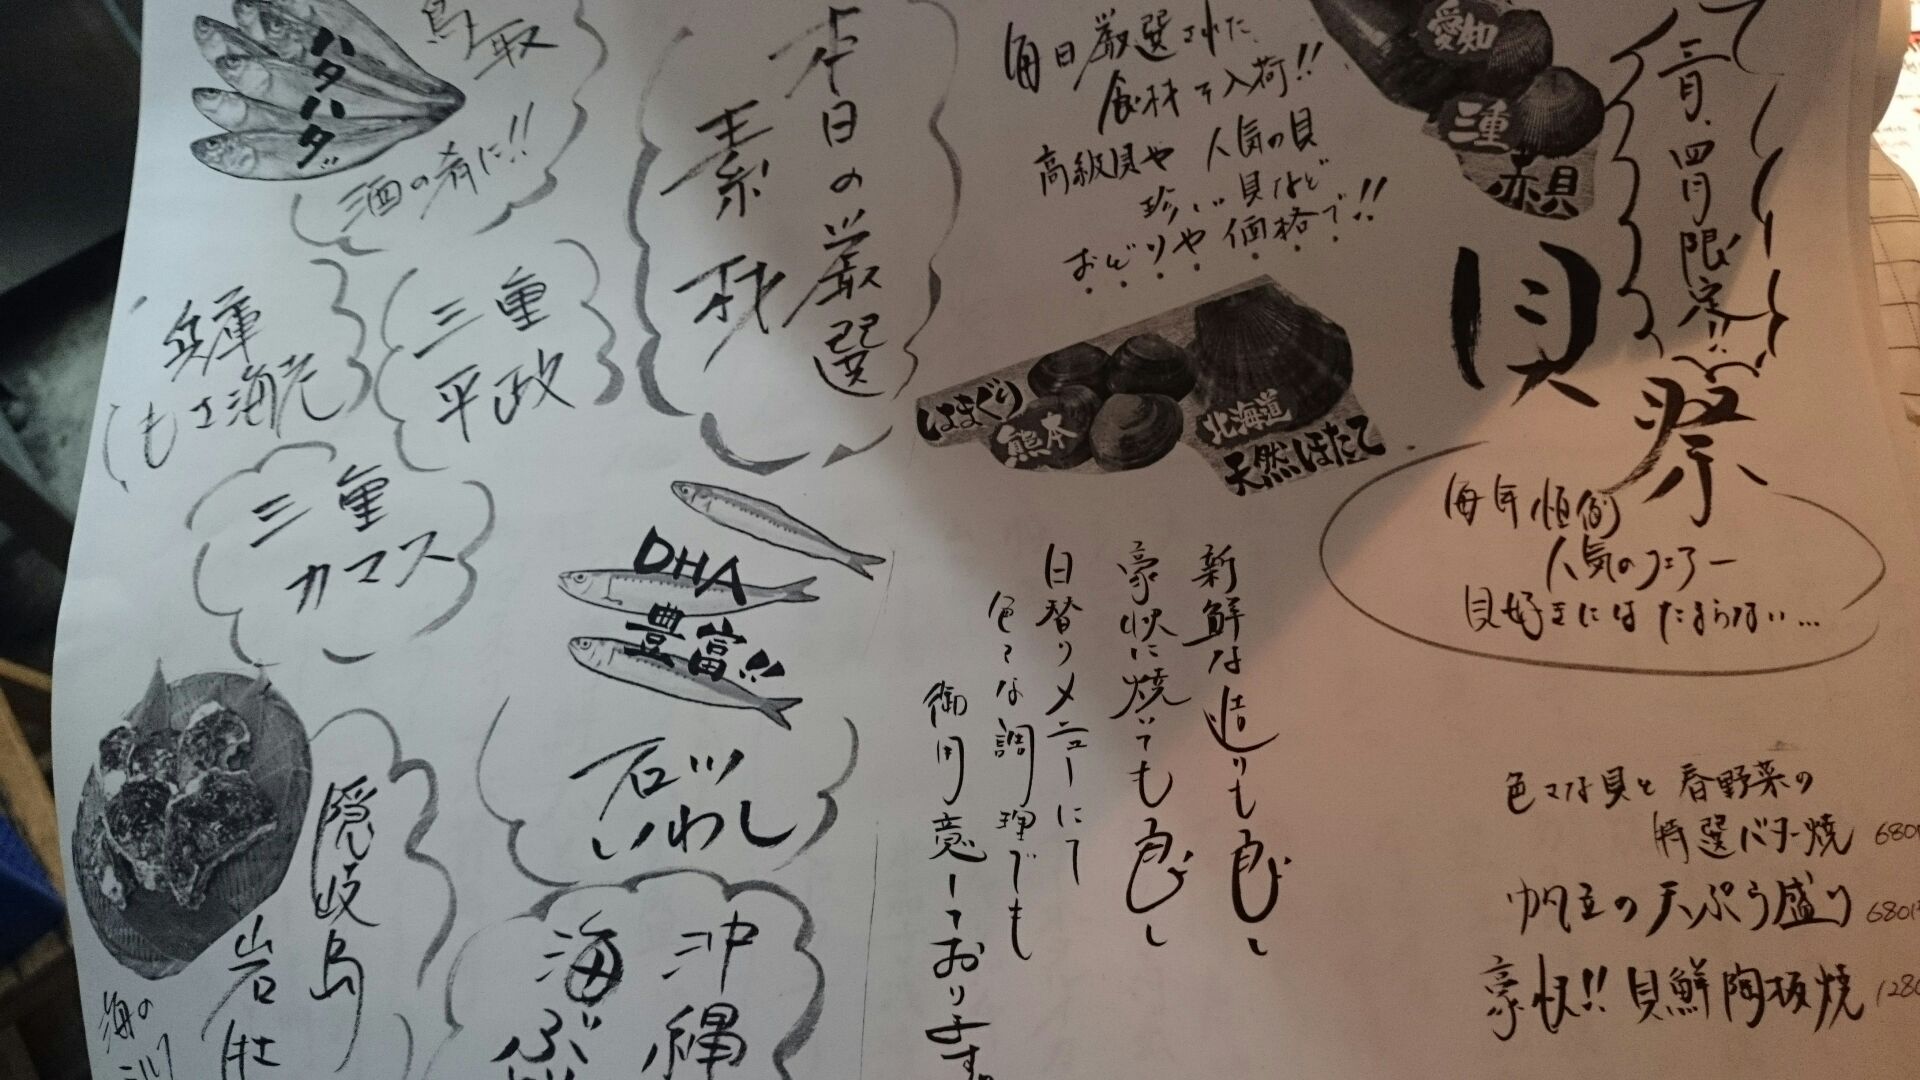 三月、四月限定!!
貝祭
毎年恒例
人気のフェアー
貝好きにはたまらない…
愛知
三重
赤貝
毎日厳選された
食材を入荷!!
高級貝や人気の貝
珍しい貝など
おどりや価格で!!
はまぐり
熊本
北海道
天然ほたて
新鮮な造りも良し
豪快に焼いても良し
日替りメニューにて
色々な調理でも
御用意しております。
色々な貝と春野菜の
特選バター焼 680
帆立の天ぷら盛り 680円
豪快!!貝鮮陶板焼 1280
本日の厳選
素材
鳥取
ハタハタ
酒の肴に!!
三重
平政
兵庫
もさ海老
三重
カマス
DHA
豊富!!
石川
いわし
隠岐島
岩牡
海の
沖縄
海ぶ